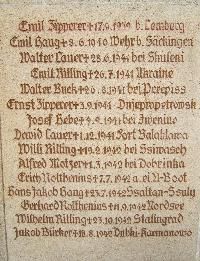 Emil Zipperer + 17.9.1939 b. Lemburg
Emil Haug + 8.6.1940 Wehr b. Säckingen
Walter Lauer + 28.6.1941 bei Skuleni
Emil Killing + 26.7.1941 Ukraine
Walter Buck + 26.8.1941 bei Perepiss
Ernst Zipperer + 3.9.1941 Dnjepropetrowsk
Josef Bebe + 9.9.1941 bei Iwenino
David Lauer + 1.12.1941 Fort Balaklawa
Willi Killing + 19.2.1942 bei Ssiwasch
Alfred Motzer + 1.3.1942 bei Dobrinka
Erich Nolthenius + 7.7.1942 a. ei U-Boot
Hans Jakob Haug + 23.7.1942 Ssaltan-Ssuly
Gerhard Nolthenius + 11.9.1942 Nordsee
Wilhelm Killing + 23.10.1942 Stalingrad
Jakob Bürker + 18.8.1942 Dubki-Karmanowo